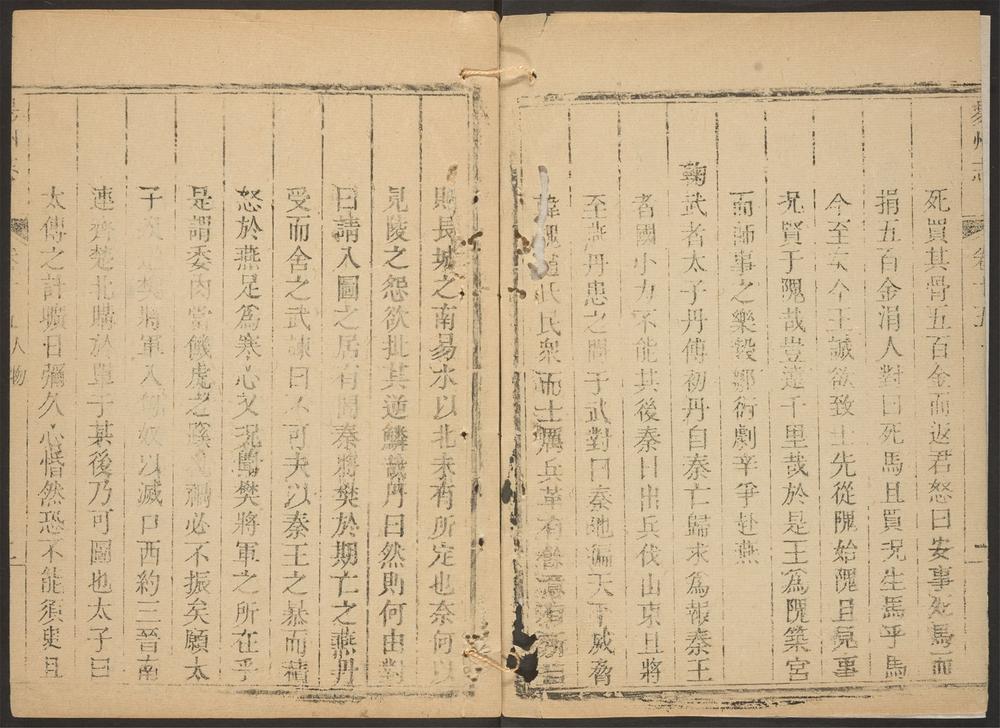 易州志 卷十五
死買其骨五百金而返君怒曰安事死馬而
捐五百金涓人對曰死馬且買況生馬乎馬
今至矣今王誠欲致士先從隗始隗且見事
況賢于隗哉豈遠千里哉於是王為隗築宮
而師事之樂毅鄒衍劇辛爭赴燕
鞠武者太子丹傅初丹自秦亡歸求為報秦王
者國小力不能其後秦日出兵伐山東且將
至燕丹患之問于武對曰秦地徧天下威脅
韓魏趙氏民眾而士厲兵革有
則長城之南易水以北未有所定也奈何以
見陵之怨欲批其逆鱗哉丹曰然則何由對
曰請入圖之居有間秦將樊於期亡之燕丹
受而舍之武諫曰不可夫以秦王之暴而積
怒於燕足為寒心又況聞樊將軍之所在乎
是謂委肉當餓虎之蹊禍必不振矣願太
子疾樊將軍入匈奴以滅口西約三晉南
連齊楚北購於單于其後乃可圖也太子曰
太傅之計曠日彌久心惛然恐不能須臾且
人物